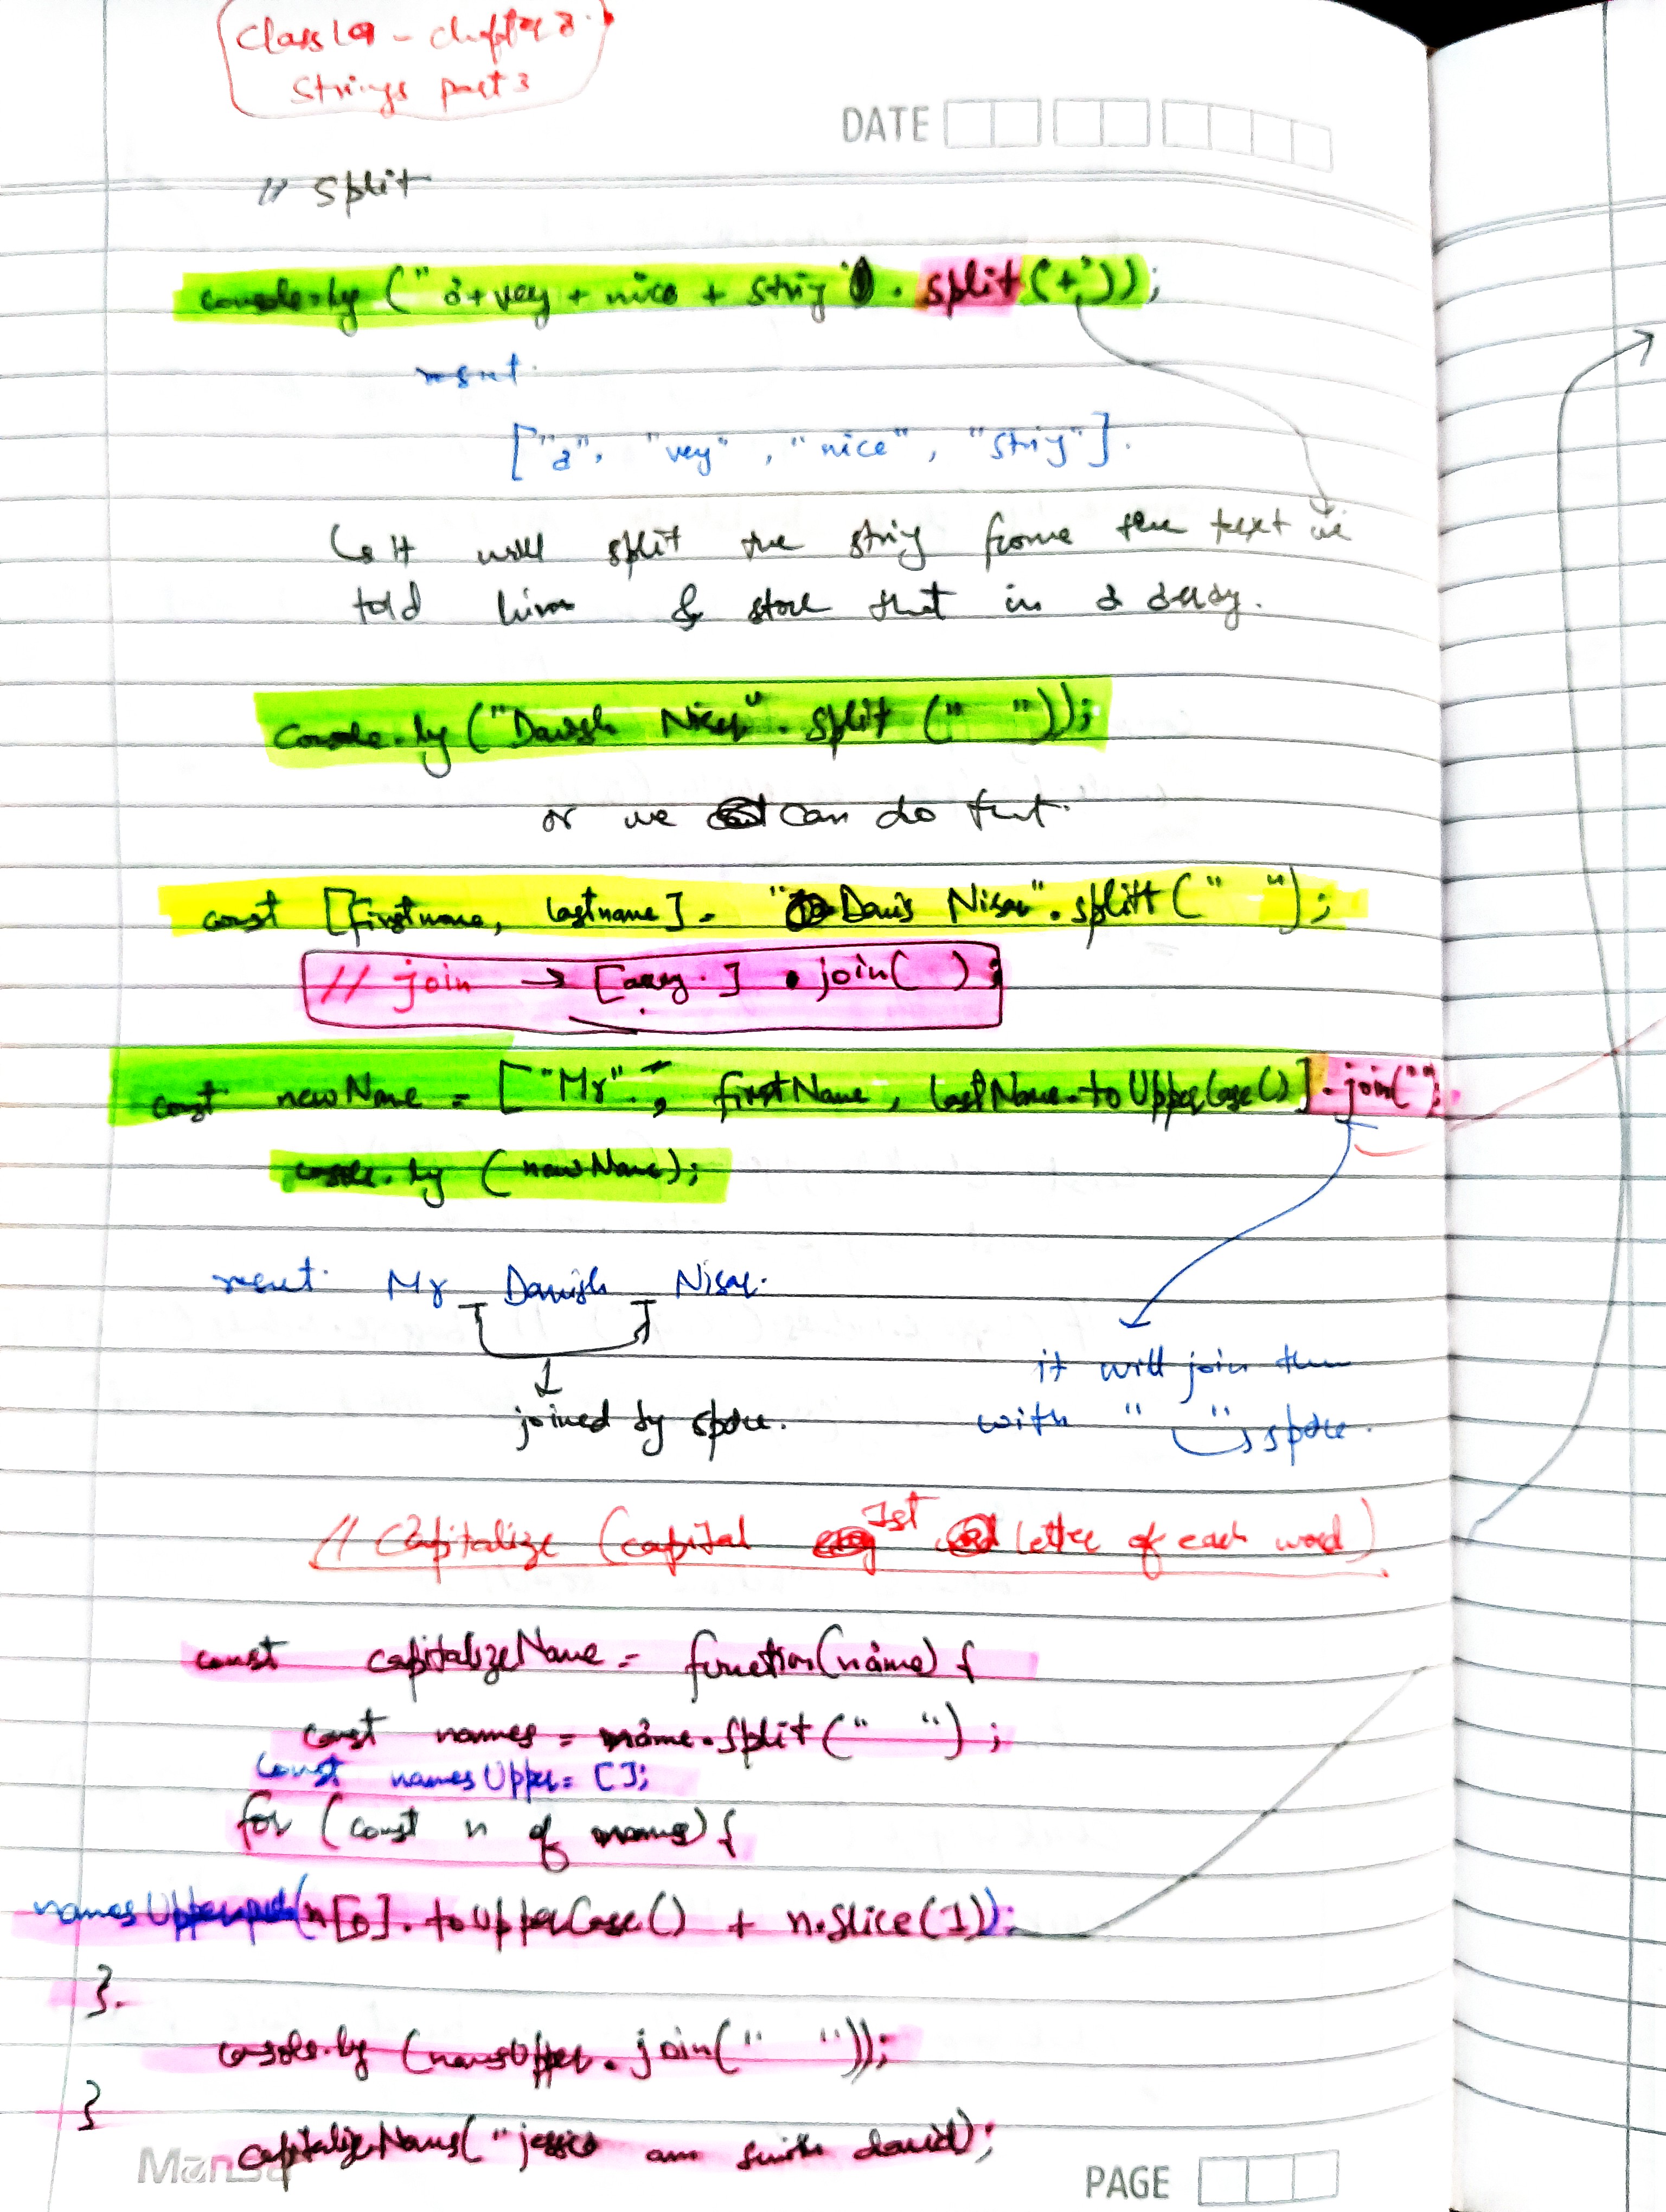 Class 19 - chapter 8.
Strings part 3
DATE
// split
console.log ("a+very + nice + string". split ('+'));
result.
["a", "very", "nice", "string"].
It will split the string frome the text we
told him & store that in a array.
console.log ("Danish Nisar". split (" "));
or we can do that.
const [firstname, lastname] = "Danis Nisar".splitt (" ");
// join → [array.] . join( );
const newName = ["Mr"., firstName, lastName.toUpperCase()].join(" ");
console.log (newName);
result. Mr Danish Nisar.
it will join them
joined by space.
with " " space.
// Capitalize (capital 1st letter of each word)
const capitalizeName = function(name) {
const names = name.split(" ");
const namesUpper = [];
for (const n of names) {
namesUpper.push(n[0].toUpperCase() + n.slice(1));
}.
console.log (namesUpper.join(" "));
}
capitalizeName("jessica ann smith david);
PAGE